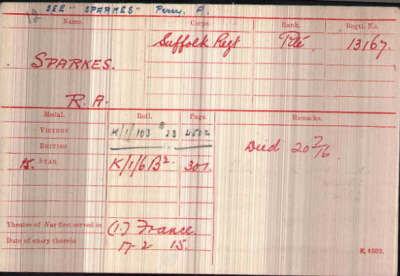 SEE - SPARKES - Percy. F.
Name. Corps. Rank. Regtl. No.
SPARKES. Suffolk Regt Pte 13167.
R.A.
Medal. Roll. Page. Remarks.
VICTORY K/1/103 B 23 4502
BRITISH Died 20/2/16.
15. STAR K/1/6 B2. 301.
Theatre of War first served in (1.) France
Date of entry therein 17 2 15.
K. 1380.